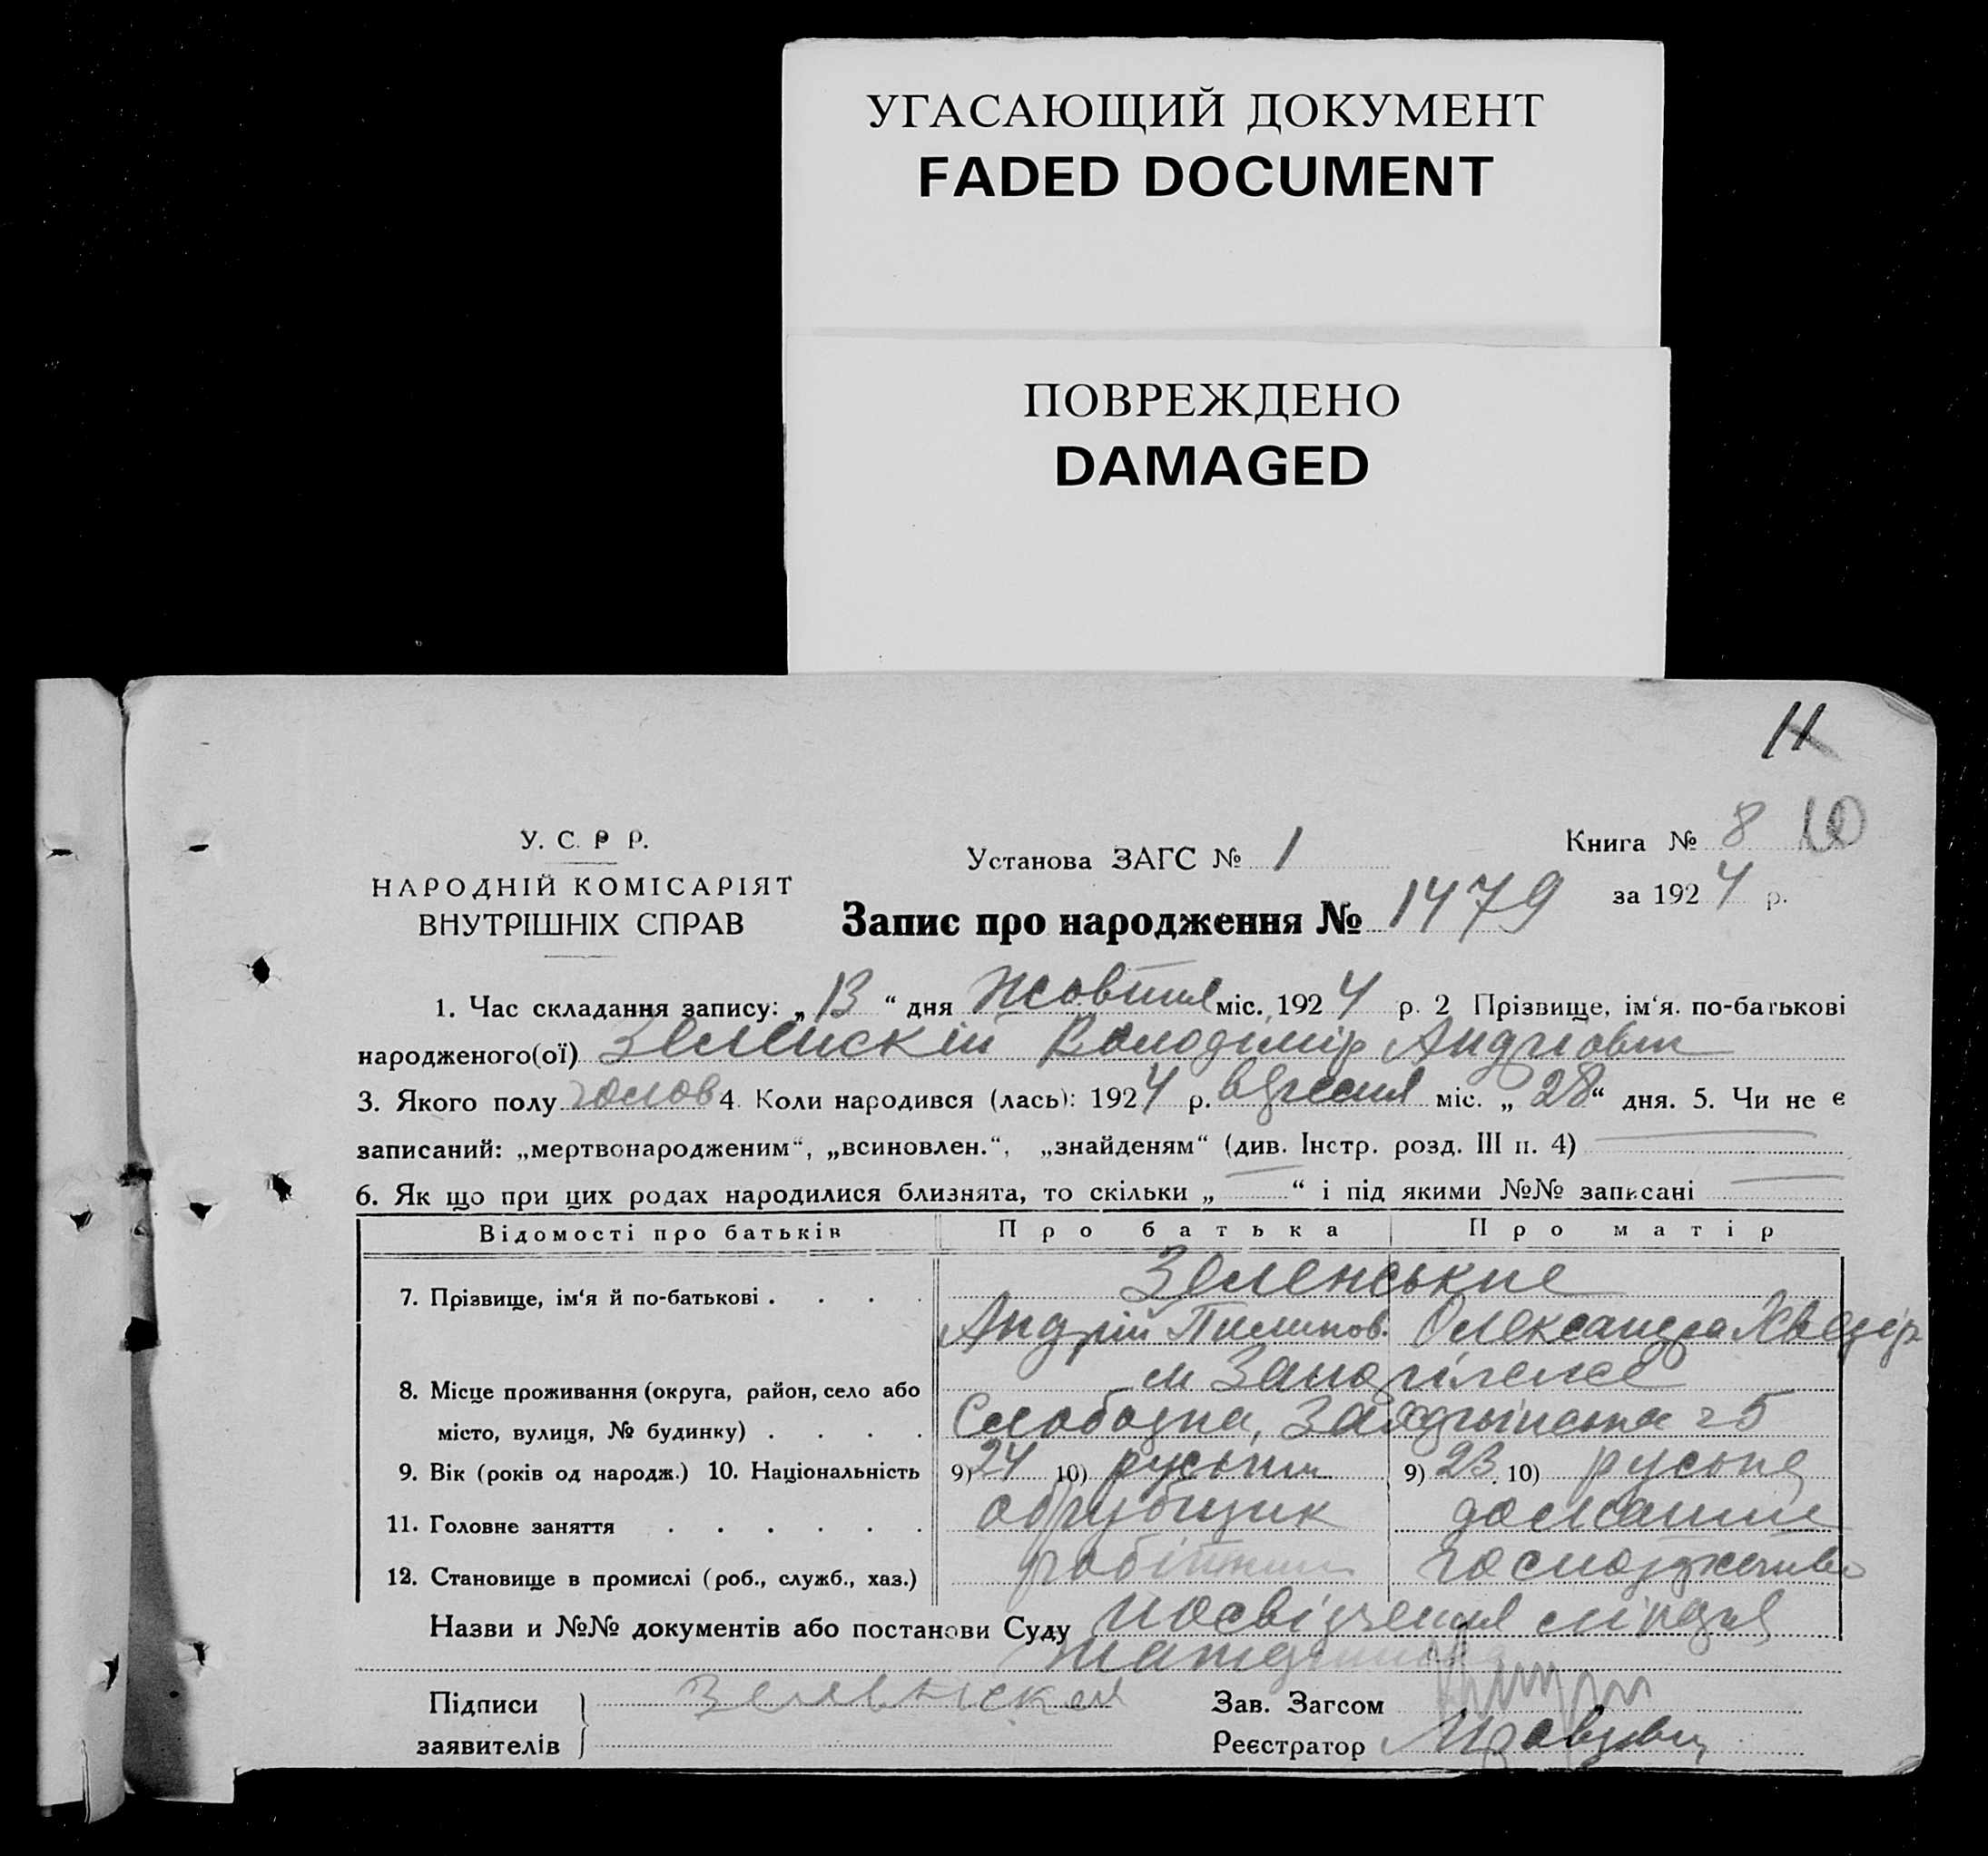 УГАСАЮЩИЙ ДОКУМЕНТ
FADED DOCUMENT
ПОВРЕЖДЕНО
DAMAGED
11
У. С. Р. Р.
НАРОДНІЙ КОМІСАРІЯТ
ВНУТРІШНІХ СПРАВ
Установа ЗАГС № 1
Книга № 8 10
за 1924 р.
Запис про народження № 1479
1. Час складання запису: „13“ дня Жовтня міс. 1924 р. 2 Прізвище, ім‘я. по-батькові
народженого(ої) Зеленскій Володімір Андріович
3. Якого полу 4. Коли народився (лась): 1924 р. вересня міс. „28“ дня. 5. Чи не є
записаний: „мертвонародженим“, „всиновлен.“, „знайденям“ (див. Інстр. розд. III п. 4)
6. Як що при цих родах народилися близнята, то скільки „ “ і під якими №№ записані
Відомості про батьків Про батька Про матір
7. Прізвище, ім‘я й по-батькові . . . . Зеленські
Андрій Пилипов. Олександра Хведір
8. Місце проживання (округа, район, село або м
місто, вулиця, № будинку) . . . . Слободка, 25
9. Вік (років од народж.) 10. Національність 9) 24 10) руський 9) 23. 10) руська
11. Головне заняття . . . . . . обрубщик домашнє
12. Становище в промислі (роб., служб., хаз.) робітник
Назви и №№ документів або постанови Суду посвідчення
Підписи
заявителів
Зеленская
Зав. Загсом
Реєстратор